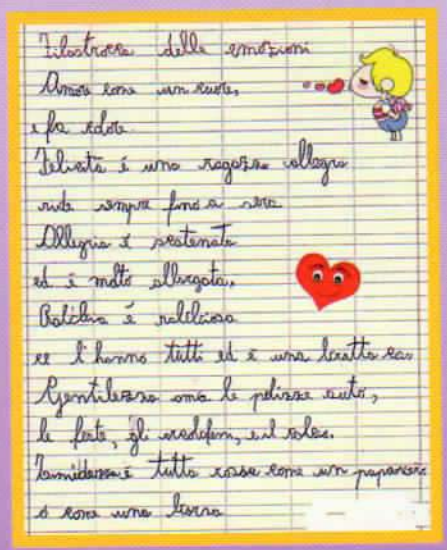 Filastrocca delle emozioni
Amore come un cuore,
e fa odore
Felicità è una ragazza allegra
ride sempre fino a sera
Allegria è scatenata
ed è molto allargata,
è
ce l'hanno tutti ed è una brutta
Gentilezza ama le pelizze auto,
le feste, gli e il
Timidezza è tutta rossa come un papavero
o come una